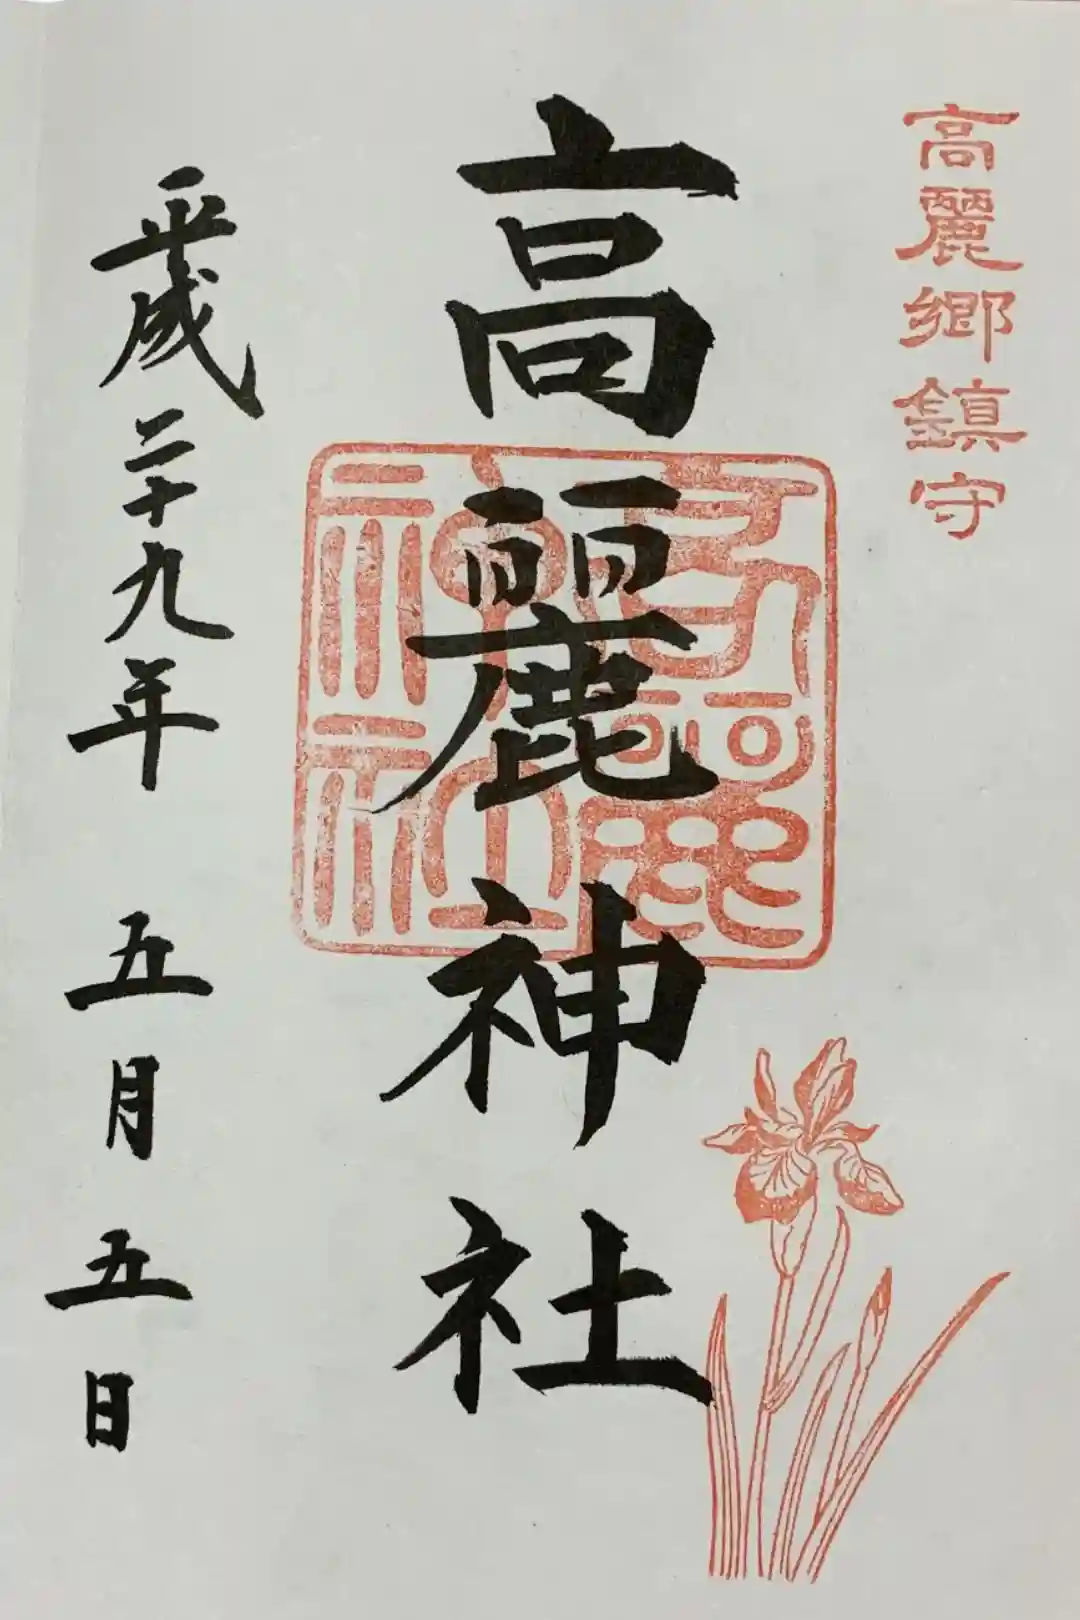 高麗郷鎮守
高麗神社
高麗神社
平成二十九年 五月 五日